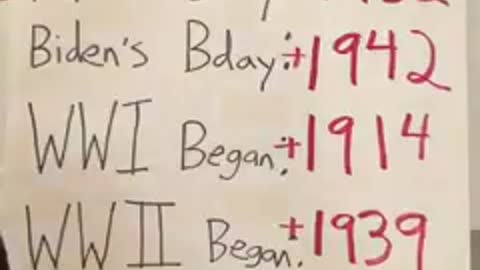 Biden's Bday: +1942
WWI Began: +1914
WWII Began: +1939